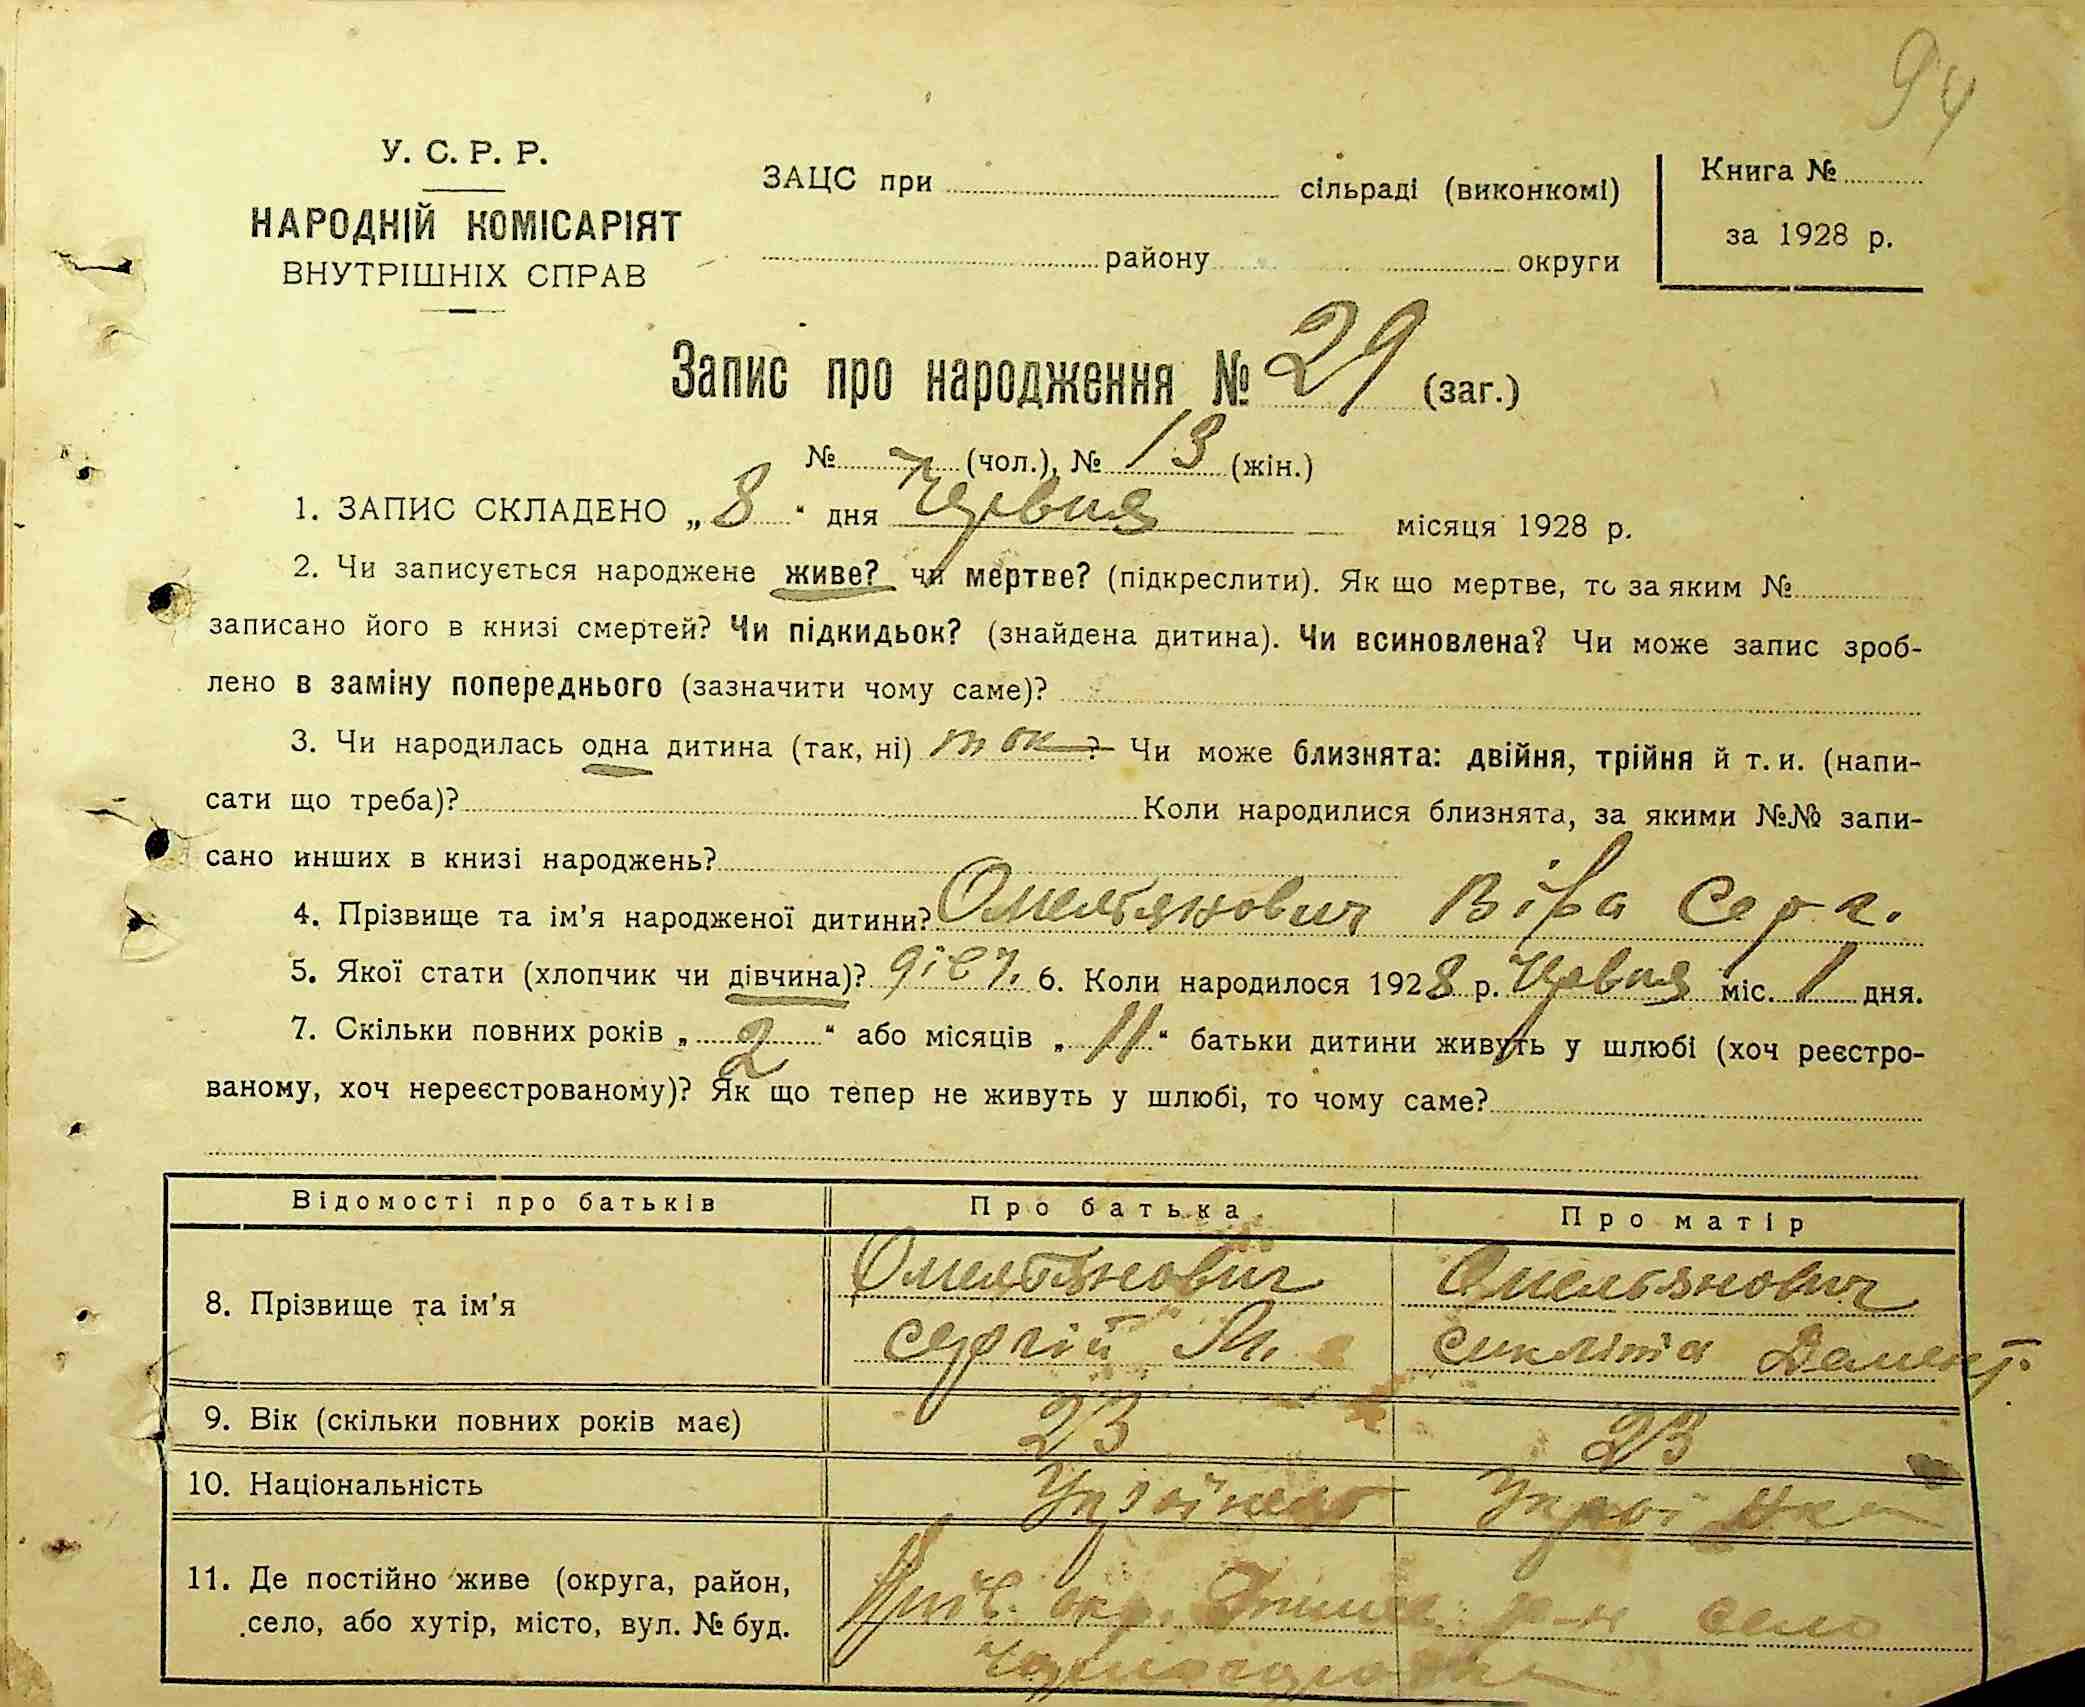 94
У. С. Р. Р.
НАРОДНІЙ КОМІСАРІЯТ
ВНУТРІШНІХ СПРАВ
ЗАЦС при сільраді (виконкомі)
району округи
Книга №
за 1928 р.
Запис про народження № 29 (заг.)
№ (чол.), № 13 (жін.)
1. ЗАПИС СКЛАДЕНО „8“ дня Червня місяця 1928 р.
2. Чи записується народжене живе? чи мертве? (підкреслити). Як що мертве, то за яким №
записано його в книзі смертей? Чи підкидьок? (знайдена дитина). Чи всиновлена? Чи може запис зроб-
лено в заміну попереднього (зазначити чому саме)?
3. Чи народилась одна дитина (так, ні) так ? Чи може близнята: двійня, трійня й т. и. (напи-
сати що треба)? Коли народилися близнята, за якими №№ запи-
сано инших в книзі народжень?
4. Прізвище та ім'я народженої дитини? Омельянович Віра Серг.
5. Якої стати (хлопчик чи дівчина)? дівч. 6. Коли народилося 1928 р. Червня міс. 1 дня.
7. Скільки повних років „2“ або місяців „11“ батьки дитини живуть у шлюбі (хоч реєстро-
ваному, хоч нереєстрованому)? Як що тепер не живуть у шлюбі, то чому саме?
Відомості про батьків Про батька Про матір
8. Прізвище та ім'я Омельянович Омельянович
Сергій М. Сикліта Демент.
9. Вік (скільки повних років має) 23 23
10. Національність Українець Українка
11. Де постійно живе (округа, район, окр. р-н село
село, або хутір, місто, вул. № буд.